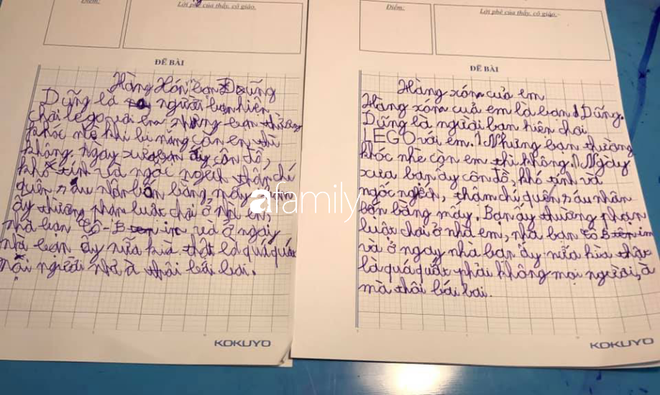 Điểm:
Lời phê của thầy, cô giáo:
ĐỀ BÀI
Hàng Xón bạn Dũng
Dũng là người bạn hiền
chơi lego với em, nhưng bạn thường
khóc nhè khi bị mắng còn em thì
không. Ngày xưa bạn ấy côn đồ,
khó tính và ngốc nghếch thậm chí
quên sáu nhân bốn bằng mấy
ấy thường phạm luật chơi ở nhà
nhà bạn Bin và ở ngay
nhà bạn ấy nữa kìa thật là quá quắt
mọi người nhỉ à thôi bái bai.
KOKUYO
Điểm:
Lời phê của thầy, cô giáo:
ĐỀ BÀI
Hàng xóm của em
Hàng xóm của em là bạn Dũng.
Dũng là người bạn hiền chơi
LEGO với em. Nhưng bạn thường
khóc nhè còn em thì không. Ngày
xưa bạn ấy côn đồ, khó tính và
ngốc nghếch, thậm chí quên sáu nhân
bốn bằng mấy. Bạn ấy thường phạm
luật chơi ở nhà em, nhà bạn Bin
và ở ngay nhà bạn ấy nữa kìa thật
là quá quắt phải không mọi người, à
mà thôi bái bai.
KOKUYO
afamily